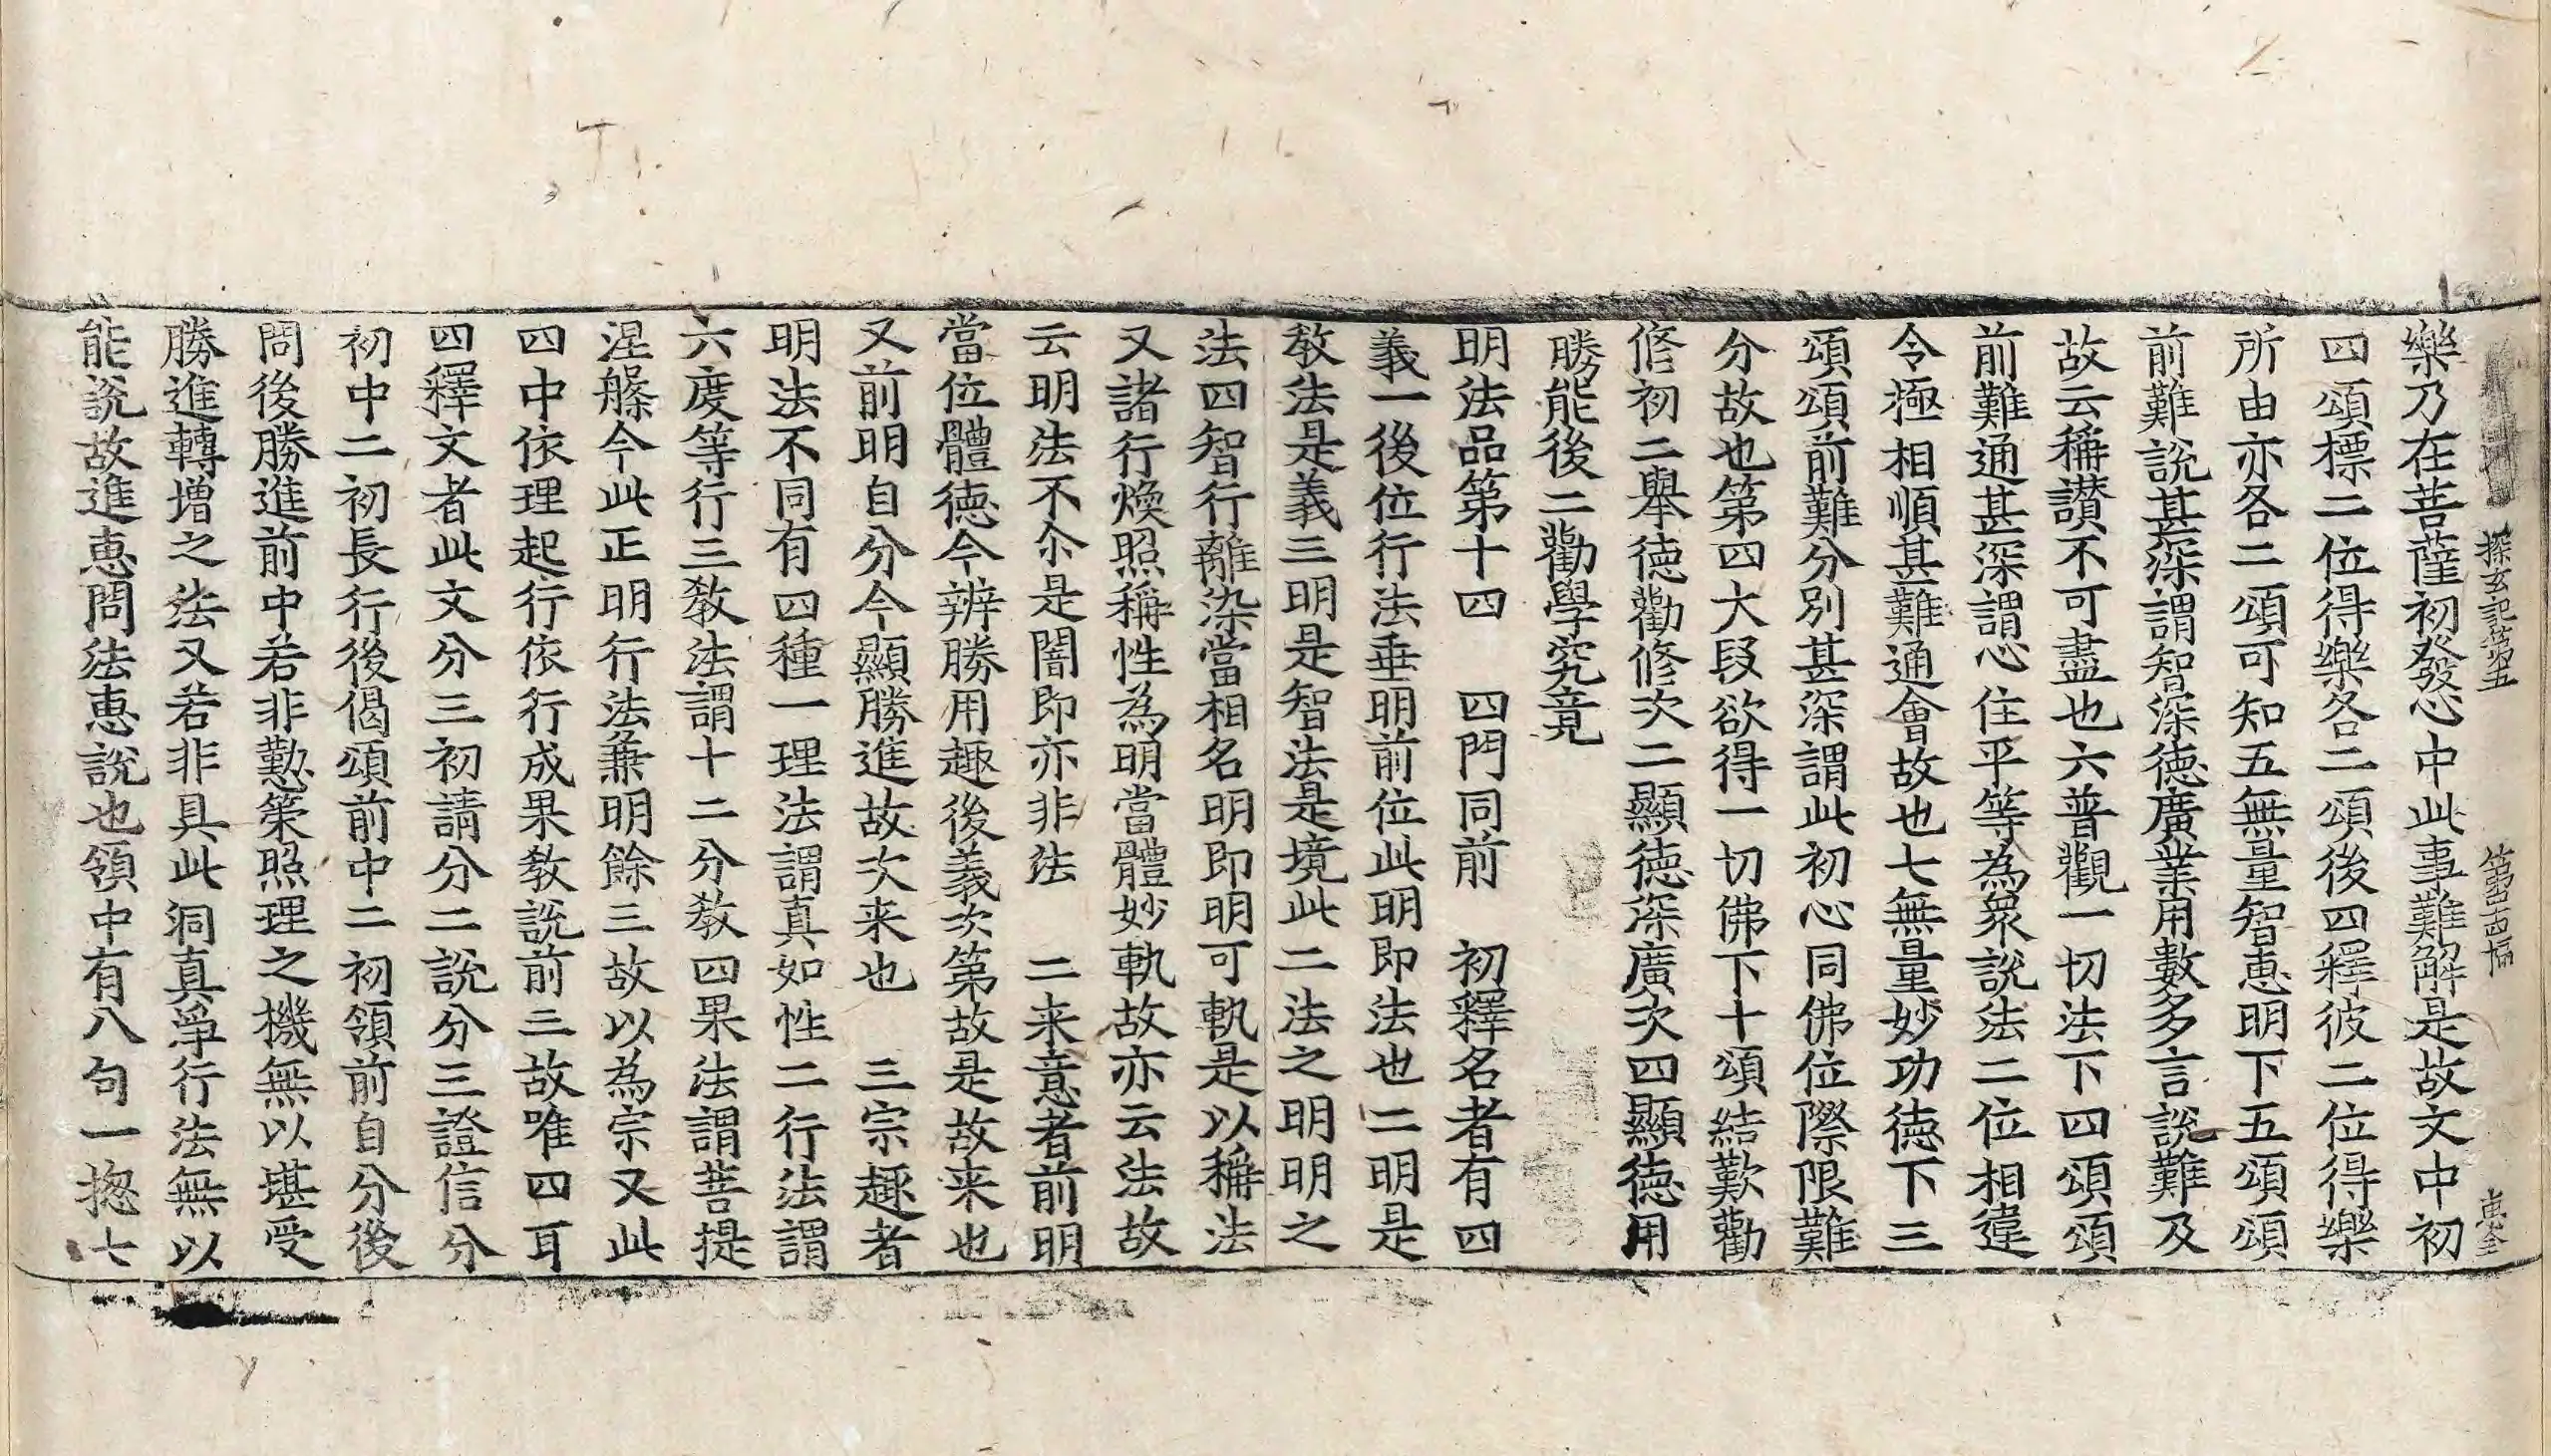 探玄記第五　第四十四幅　惠全
樂乃在菩薩初發心中此事難解是故文中初
四頌標二位得樂各二頌後四釋彼二位得樂
所由亦各二頌可知五無量智惠明下五頌頌
前難說甚深謂智深德廣業用數多言說難及
故云稱讃不可盡也六普觀一切法下四頌頌
前難通甚深謂心住平等為衆說法二位相違
令極相順甚難通會故也七無量妙功德下三
頌頌前難分別甚深謂此初心同佛位際限難
分故也第四大段欲得一切佛下十頌結歎勸
修初二舉德勸修次二顯德深廣次四顯德用
勝能後二勸學究竟
明法品第十四　四門同前　初釋名者有四
義一後位行法垂明前位此明即法也二明是
教法是義三明是智法是境此二法之明明之
法四智行離染當相名明即明可軌是以稱法
又諸行煥照稱性為明當體妙軌故亦云法故
云明法不尒是闇即亦非法　二来意者前明
當位體德今辨勝用趣後義次第故是故来也
又前明自分今顯勝進故次来也　三宗趣者
明法不同有四種一理法謂真如性二行法謂
六度等行三教法謂十二分教四果法謂菩提
涅槃今此正明行法兼明餘三故以為宗又此
四中依理起行依行成果教說前三故唯四耳
四釋文者此文分三初請分二說分三證信分
初中二初長行後偈頌前中二初領前自分後
問後勝進前中若非懃策照理之機無以堪受
勝進轉增之法又若非具此洞真淨行法無以
能說故進惠問法惠說也領中有八句一揔七